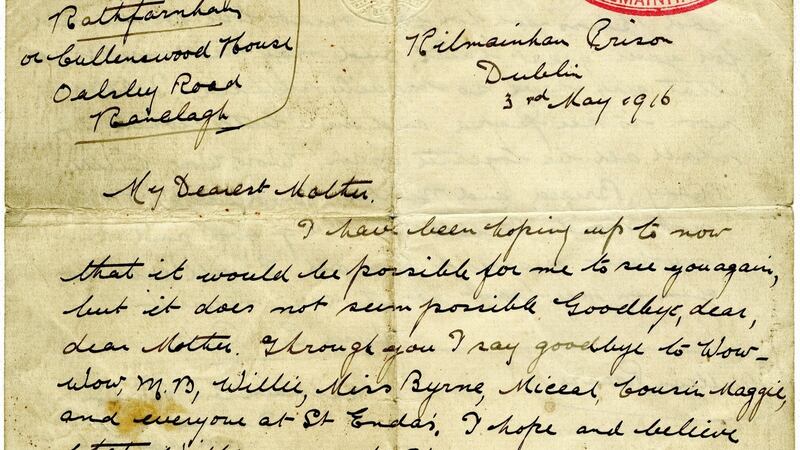 Rathfarnham
or Cullenswood House
Oakley Road
Ranelagh
KILMAINHAM
Kilmainham Prison
Dublin
3rd May 1916
My Dearest Mother,
I have been hoping up to now
that it would be possible for me to see you again,
but it does not seem possible. Goodbye, dear,
dear Mother. Through you I say goodbye to Wow-
Wow, M.B, Willie, Miss Byrne, Miceal, Cousin Maggie,
and everyone at St Enda's. I hope and believe